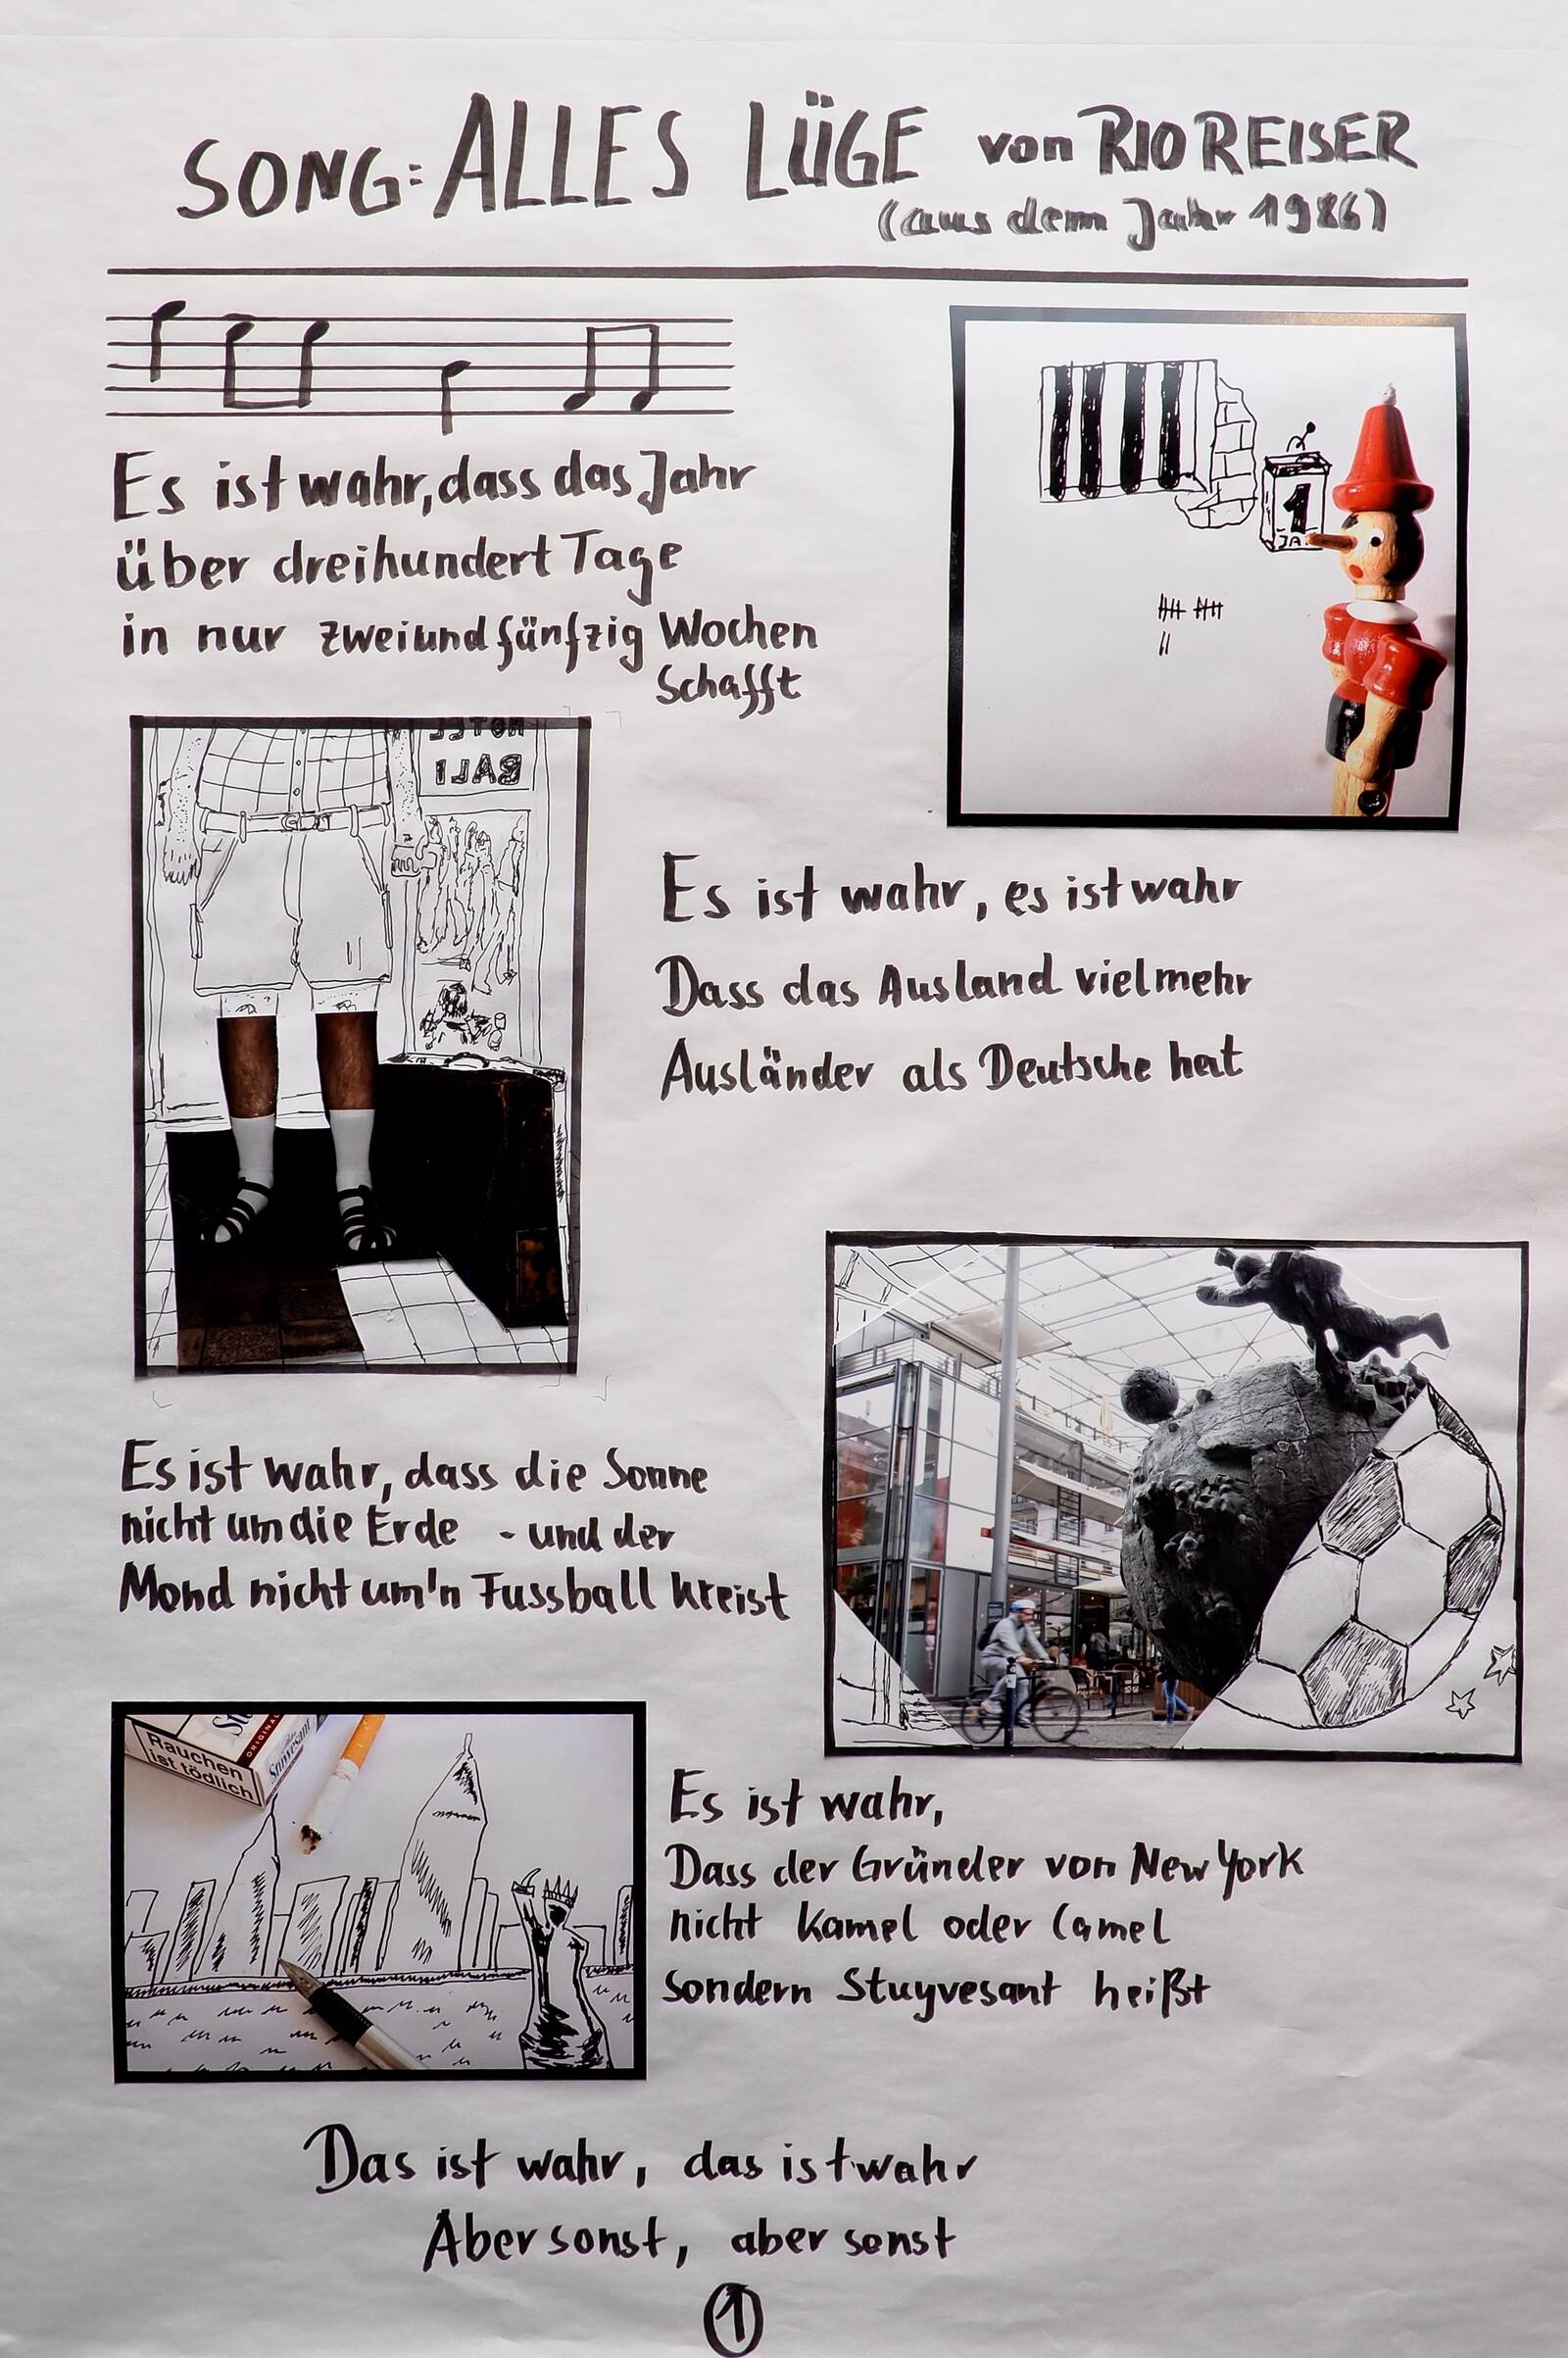 SONG: ALLES LÜGE von RIO REISER
(aus dem Jahr 1986)
Es ist wahr, dass das Jahr
über dreihundert Tage
in nur zweiundfünfzig Wochen
schafft
1
JA
HOTEL
BALI
Es ist wahr, es ist wahr
Dass das Ausland vielmehr
Ausländer als Deutsche hat
Es ist wahr, dass die Sonne
nicht um die Erde - und der
Mond nicht um'n Fussball kreist
Rauchen
ist tödlich
ORIGINAL
Stuyvesant
Es ist wahr,
Dass der Gründer von New York
nicht Kamel oder Camel
sondern Stuyvesant heißt
Das ist wahr, das ist wahr
Aber sonst, aber sonst
1